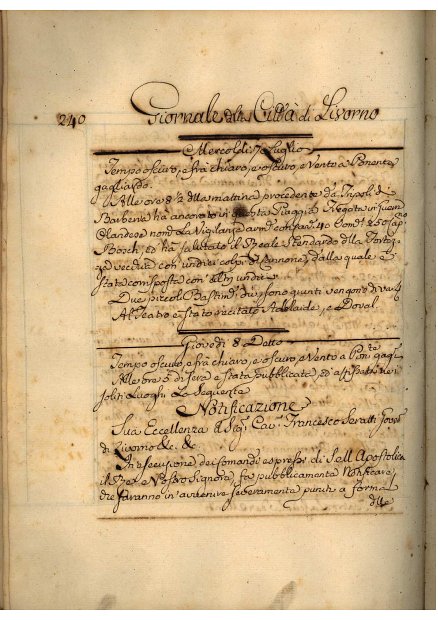 240 Giornale della Città di Livorno
Mercoldi 7 Luglio
Tempo oscuro, e frà chiaro, e oscuro, e Vento a Ponente
gagliardo.
Alle ore 8 1/2 della mattina procedente da Tripoli di
Barberia ha ancorato in questa Piaggia Fregata
Olandese nom: La Vigilanza arm: con 40 Cann: 250
Bosch, ed ha salutato il Reale Stendardo della Fortez:
za vecchia con undici colpi di Cannone, dalla quale è
stata composta con altri undici
Due piccoli Bastim: sono giunti
Al Teatro è stato recitato Adelaide, e Doval.
Giovedi 8 Detto
Tempo oscuro, e frà chiaro, e oscuro, e Vento a Pon:te gag:
Alle ore 5 di sera è stata pubblicata, ed affissa nei
soliti Luoghi La Seguente
Notificazione
Sua Eccellenza il Sig: Cav: Francesco Seratti Gov:
di Livorno &c. &
In esecuzione dei Comandi espressi di S. Altezza
il Nostro Signore, fa pubblicamente Notificare
che saranno in avvenire severamente puniti a forma
delle